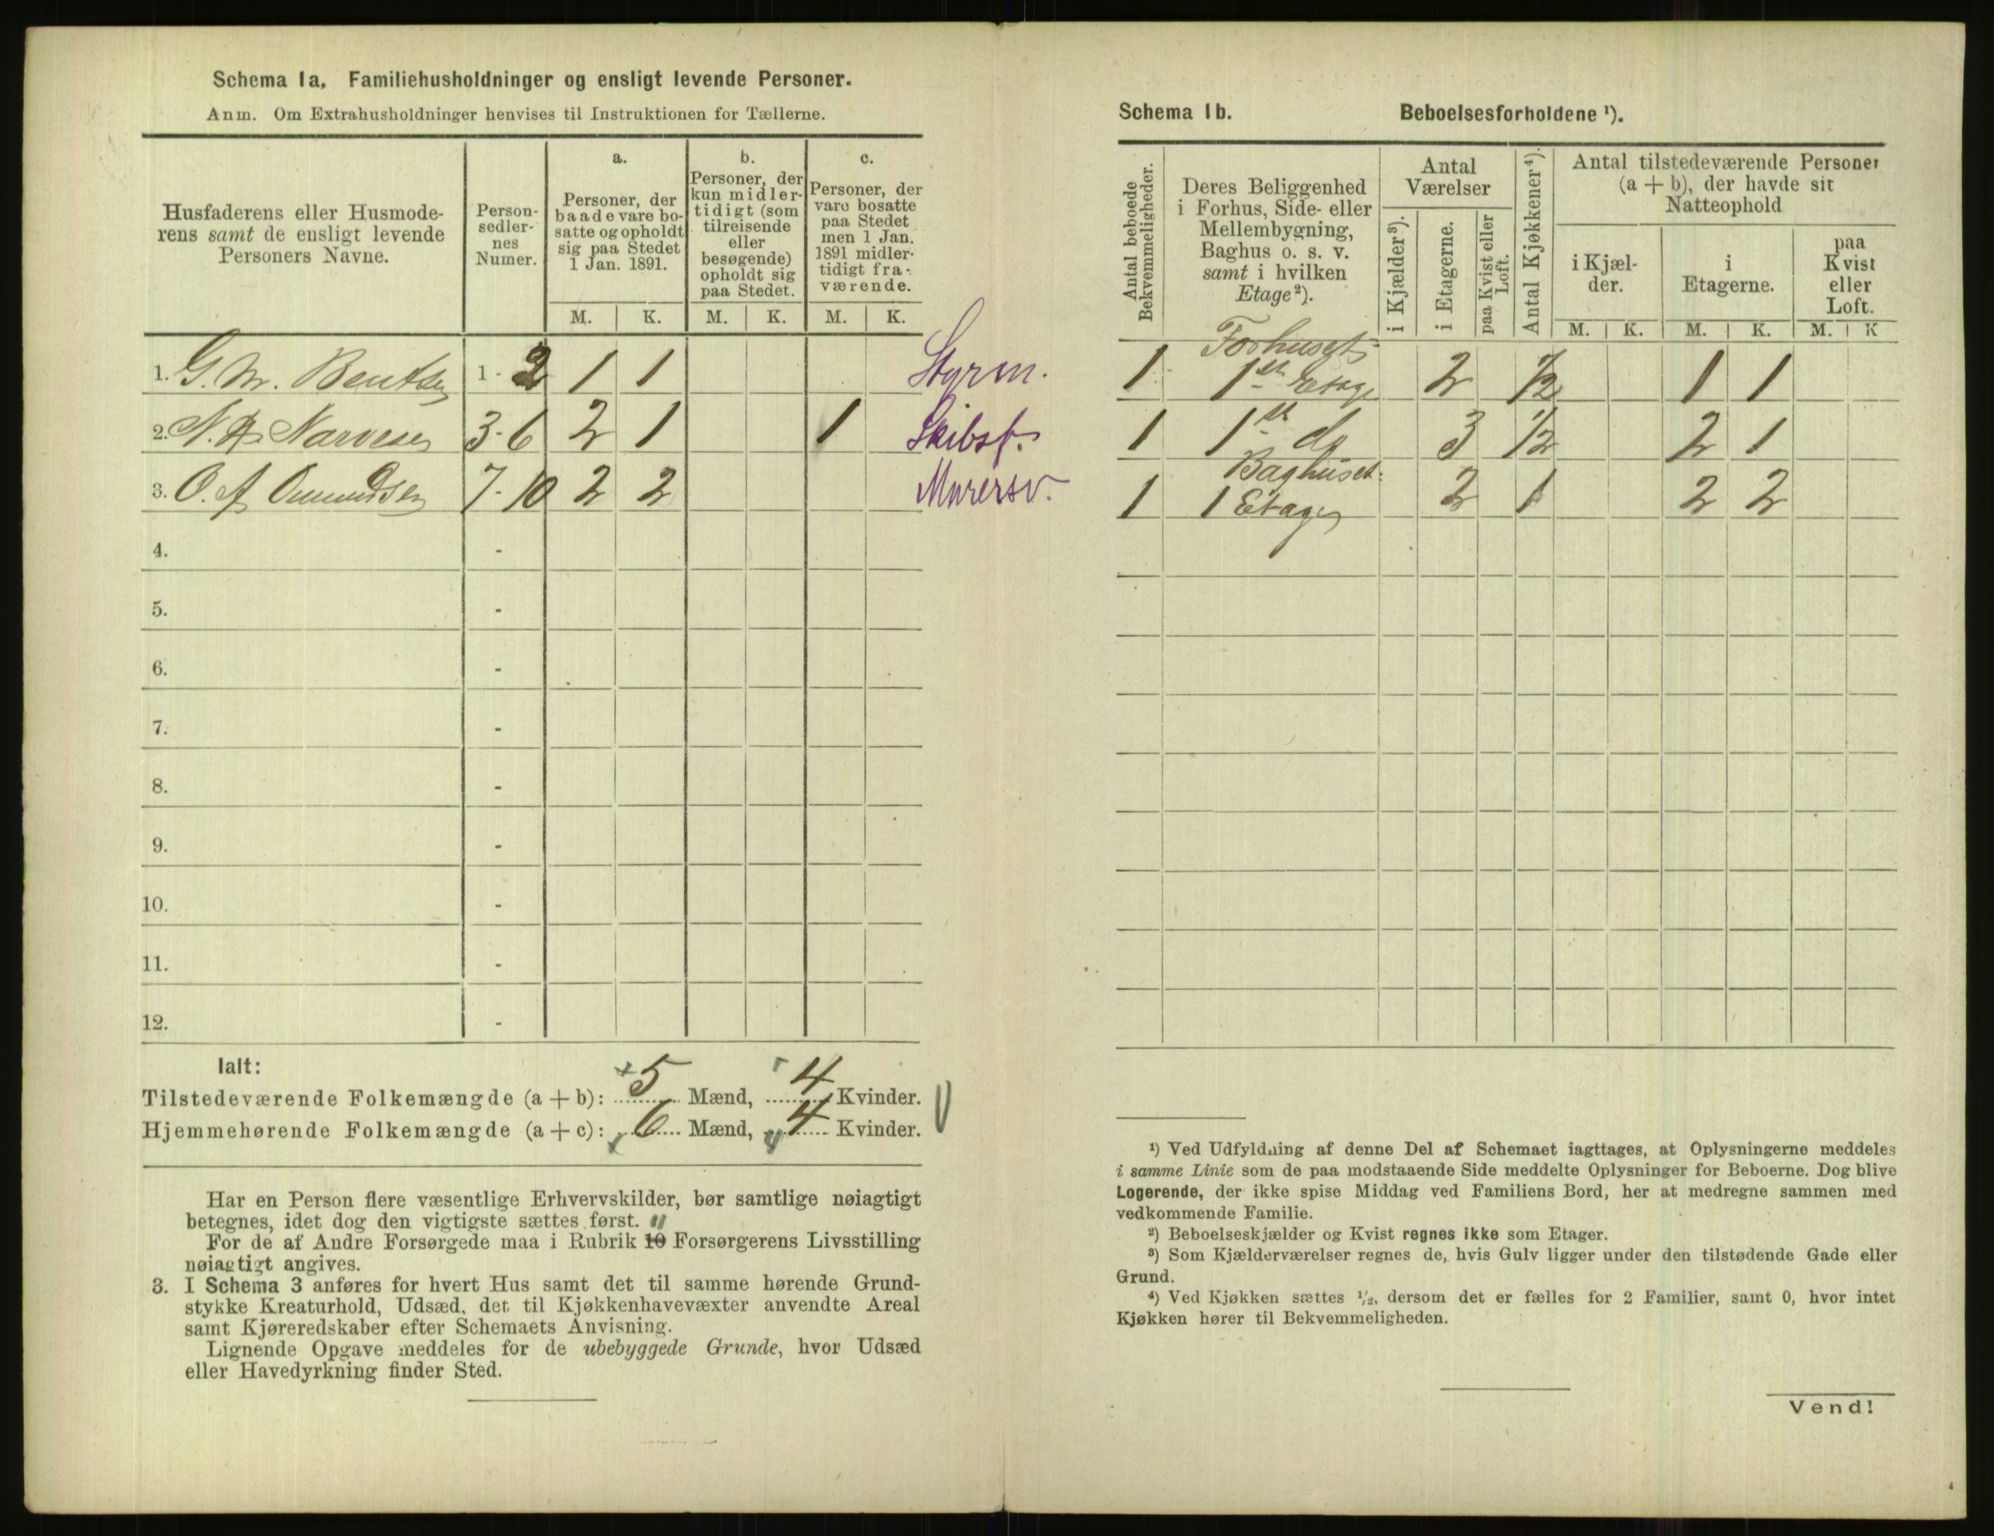 Schema 1a. Familiehusholdninger og ensligt levende Personer.
Anm. Om Extrahusholdninger henvises til Instruktionen for Tællerne.
Husfaderens eller Husmode-
rens samt de ensligt levende
Personers Navne.
Person-
sedler-
nes
Numer.
a.
Personer, der
baade vare bo-
satte og opholdt
sig paa Stedet
1 Jan. 1891.
b.
Personer, der
kun midler-
tidigt (som
tilreisende
eller
besøgende)
opholdt sig
paa Stedet.
c.
Personer, der
vare bosatte
paa Stedet
men 1 Jan.
1891 midler-
tidigt fra-
værende.
M. K. M. K. M. K.
1. G. M. Bentsen 1 - 2 1 1 Styrm.
2. N. A. Narvesen 3 - 6 2 1 1 Skibsf.
3. O. A. Omundsen 7 - 10 2 2 Murersv.
4. -
5. -
6. -
7. -
8. -
9. -
10. -
11. -
12. -
Ialt:
Tilstedeværende Folkemængde (a + b): 5 Mænd, 4 Kvinder.
Hjemmehørende Folkemængde (a + c): 6 Mænd, 4 Kvinder.
Har en Person flere væsentlige Erhvervskilder, bør samtlige nøiagtigt
betegnes, idet dog den vigtigste sættes først. 11
For de af Andre Forsørgede maa i Rubrik 10 Forsørgerens Livsstilling
nøiagtigt angives.
3. I Schema 3 anføres for hvert Hus samt det til samme hørende Grund-
stykke Kreaturhold, Udsæd, det til Kjøkkenhavevæxter anvendte Areal
samt Kjøreredskaber efter Schemaets Anvisning.
Lignende Opgave meddeles for de ubebyggede Grunde, hvor Udsæd
eller Havedyrkning finder Sted.
Schema 1b. Beboelsesforholdene ¹).
Antal beboede
Bekvemmeligheder.
Deres Beliggenhed
i Forhus, Side- eller
Mellembygning,
Baghus o. s. v.
samt i hvilken
Etage²).
Antal
Værelser
i Kjælder³).
i Etagerne.
paa Kvist eller
Loft.
Antal Kjøkkener⁴).
Antal tilstedeværende Personer
(a + b), der havde sit
Natteophold
i Kjæl-
der.
i
Etagerne.
paa
Kvist
eller
Loft.
M. K. M. K. M. K
Forhuset
1 1ste Etage 2 1/2 1 1
1 1ste do 3 1/2 2 1
Baghuset
1 1 Etage 2 1 2 2
¹) Ved Udfyldning af denne Del af Schemaet iagttages, at Oplysningerne meddeles
i samme Linie som de paa modstaaende Side meddelte Oplysninger for Beboerne. Dog blive
Logerende, der ikke spise Middag ved Familiens Bord, her at medregne sammen med
vedkommende Familie.
²) Beboelseskjælder og Kvist regnes ikke som Etager.
³) Som Kjælderværelser regnes de, hvis Gulv ligger under den tilstødende Gade eller
Grund.
⁴) Ved Kjøkken sættes ½, dersom det er fælles for 2 Familier, samt 0, hvor intet
Kjøkken hører til Bekvemmeligheden.
Vend!